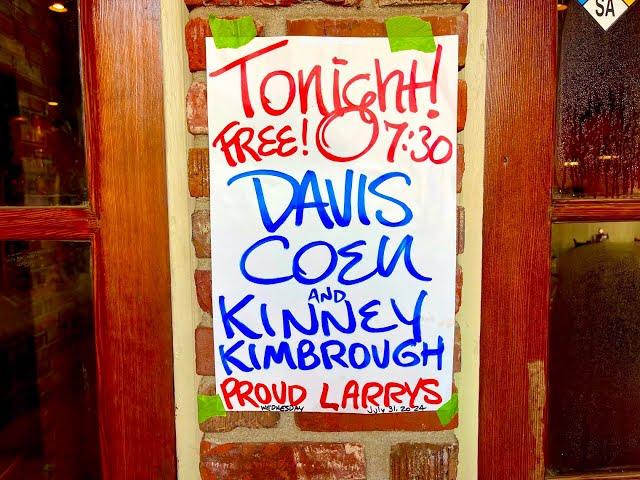 Tonight!
FREE! @ 7:30
DAVIS
COEN
AND
KINNEY
KIMBROUGH
PROUD LARRYS
WEDNESDAY July 31, 2024
SA